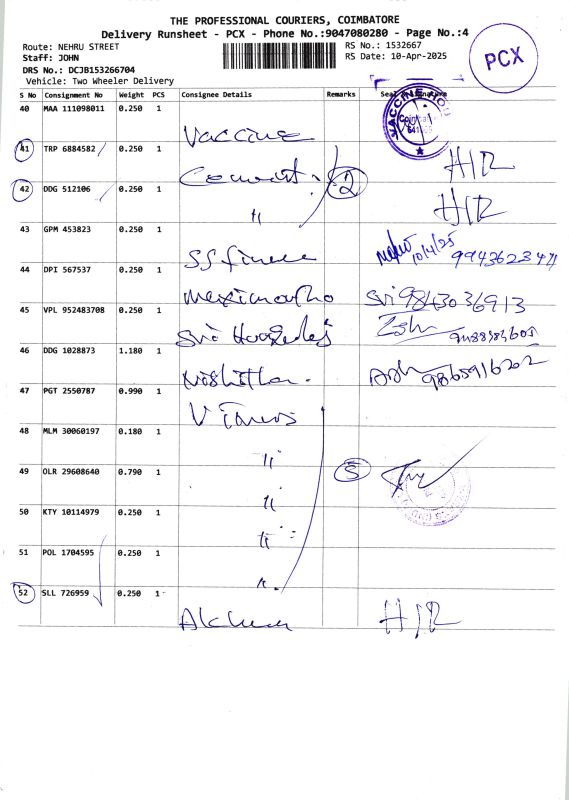 THE PROFESSIONAL COURIERS, COIMBATORE
Delivery Runsheet - PCX - Phone No.:9047080280 - Page No.:4
Route: NEHRU STREET
Staff: JOHN
DRS No.: DCJB153266704
Vehicle: Two Wheeler Delivery
RS No.: 1532667
RS Date: 10-Apr-2025
PCX
S No Consignment No Weight PCS Consignee Details Remarks
40 MAA 111098011 0.250 1 Vaccine
41 TRP 6884582 0.250 1 2 H/R
42 DDG 512106 0.250 1 " H/R
43 GPM 453823 0.250 1 10/4/25
44 DPI 567537 0.250 1 Sri 9843036913
45 VPL 952483708 0.250 1 Sri
46 DDG 1028873 1.180 1 9865916202
47 PGT 2550787 0.990 1 V Times
48 MLM 30060197 0.180 1 "
49 OLR 29608640 0.790 1 " 5
50 KTY 10114979 0.250 1 "
51 POL 1704595 0.250 1 "
52 SLL 726959 0.250 1 H/R